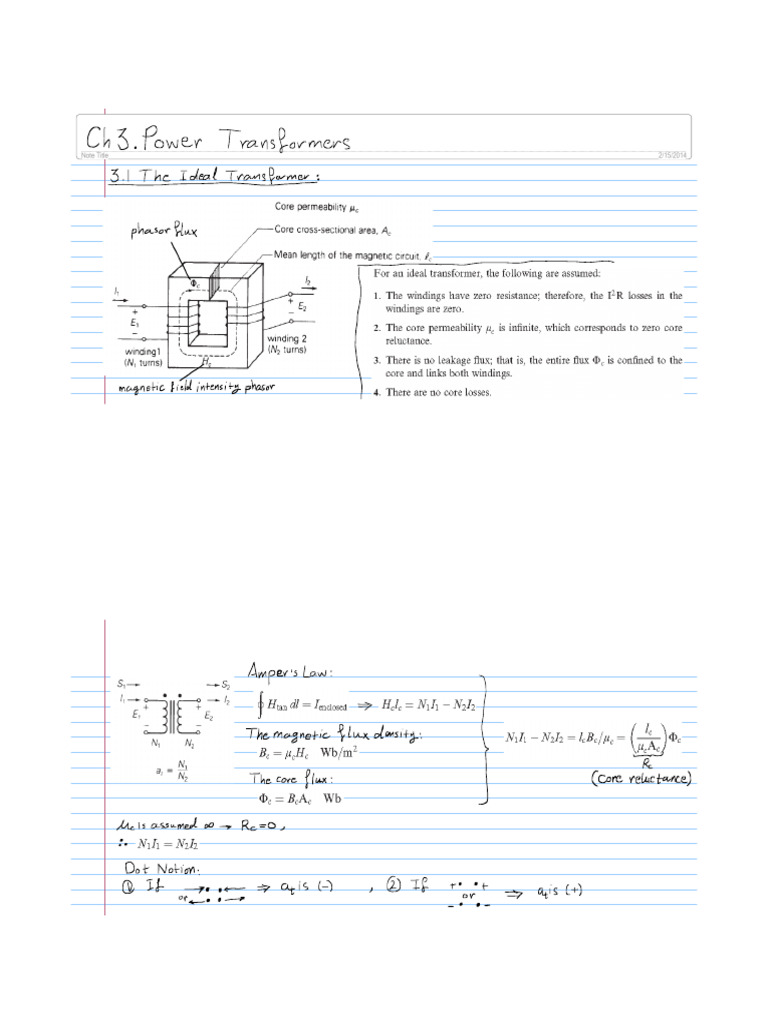 Ch 3. Power Transformers
Note Title
2/15/2014
3.1 The Ideal Transformer:
Core permeability μc
phasor flux
Core cross-sectional area, Ac
Mean length of the magnetic circuit, lc
Φc
I1
I2
+
E1
−
+
E2
−
winding 1
(N1 turns)
winding 2
(N2 turns)
Hc
magnetic field intensity phasor
For an ideal transformer, the following are assumed:
1. The windings have zero resistance; therefore, the I²R losses in the
windings are zero.
2. The core permeability μc is infinite, which corresponds to zero core
reluctance.
3. There is no leakage flux; that is, the entire flux Φc is confined to the
core and links both windings.
4. There are no core losses.
S1 → → S2
I1 → → I2
+ +
E1 E2
− −
N1 N2
at = N1/N2
Amper's Law:
∮ Htan dl = Ienclosed ⇒ Hclc = N1I1 − N2I2
The magnetic flux density:
Bc = μcHc Wb/m²
The core flux:
Φc = BcAc Wb
N1I1 − N2I2 = lcBc/μc = (lc/μcAc)Φc
Rc
(Core reluctance)
μc is assumed ∞ → Rc=0,
∴ N1I1 = N2I2
Dot Notion:
① If →• •← or ←• •→ ⇒ at is (−) , ② If +• •+ or −• •− ⇒ at is (+)